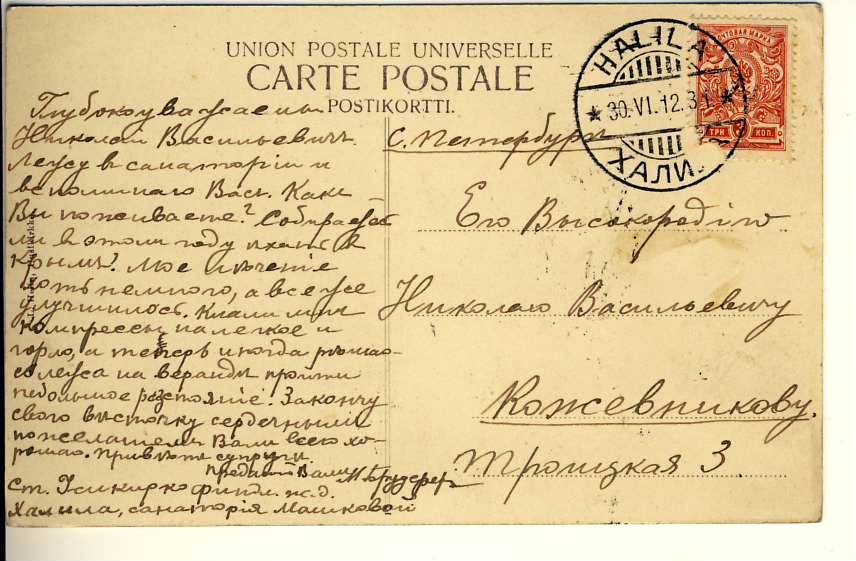 UNION POSTALE UNIVERSELLE
CARTE POSTALE
POSTIKORTTI.
HALILA
30.VI.12.
ХАЛИ
ПОЧТОВАЯ МАРКА
ТРИ КОП.
Глубокоуважаемы
Николай Васильевичъ
Лежу в санаторіи и
вспоминаю Васъ. Какъ
Вы поживаете? Собираетесь
ли в этомъ году ехать в
Крымъ? Мое леченіе
хоть немного, а все же
улучшилось. Клали мнѣ
компрессы на легкое и
горло, а теперь иногда рѣшаю-
лежа на верандѣ пройти
небольшое разстояніе. Закончу
свою вѣсточку сердечными
пожеланіемъ Вамъ всего хо-
рошаго. Привѣтъ супруги.
Преданный Вамъ
ст. Усикирко финл. ж. д.
Халила, санаторія Машковой
С. Петербургъ
Его Высокородію
Николаю Васильевичу
Кожевникову.
Троицкая 3.